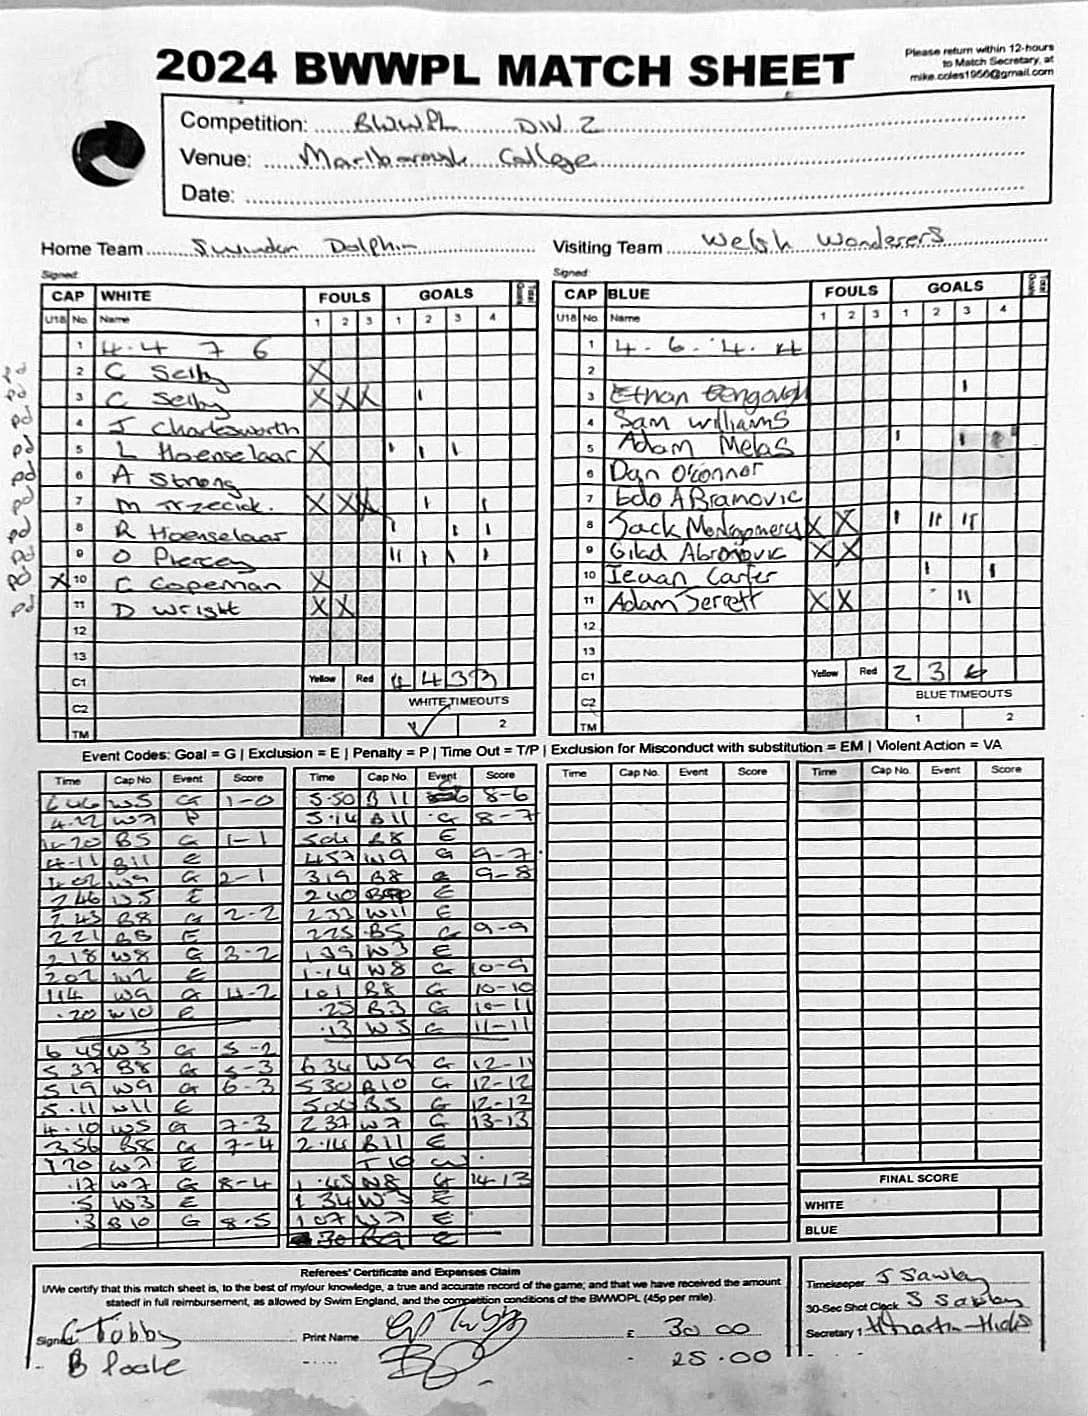 2024 BWWPL MATCH SHEET
Please return within 12-hours
to Match Secretary, at
mike.coles1956@gmail.com
Competition: BWWPL DIV 2
Venue: Marlborough College
Date:
Home Team Swindon Dolphin
Visiting Team Welsh Wonderers
Signed:
Signed:
CAP WHITE FOULS GOALS Total Goals
U18 No. Name 1 2 3 1 2 3 4
1 4.4 7 6
2 C Selby X
3 C Selby X X X
4 J Charlesworth
5 L Hoenselaar X
6 A Strong
7 M Trzeciak. X X X
8 R Hoenselaar
9 O Piercey
X 10 C Copeman X
11 D Wright X X
12
13
C1 Yellow Red 4 4 3 3
C2 WHITE TIMEOUTS
TM 2
CAP BLUE FOULS GOALS Total Goals
U18 No. Name 1 2 3 1 2 3 4
1 4. 6. 4. 4
2
3 Ethan Gengough
4 Sam Williams
5 Adam Melas
6 Dan O'Connor
7 Edo ABranovic
8 Jack Montgomery X X
9 Gilad Abronovic X X
10 Ieuan Carter
11 Adam Jerrett X X
12
13
C1 Yellow Red 2 3 6
C2 BLUE TIMEOUTS
TM 1 2
Event Codes: Goal = G | Exclusion = E | Penalty = P | Time Out = T/P | Exclusion for Misconduct with substitution = EM | Violent Action = VA
Time Cap No. Event Score
6 46 W5 G 1-0
4.22 W7 P
4.20 B5 G 1-1
4-11 B11 E
4.02 W9 G 2-1
2 46 W5 E
2 45 B8 G 2-2
2 21 B8 E
2 18 W8 G 3-2
2 02 W2 E
1 14 W9 G 4-2
.20 W10 E
6 45 W3 G 5-2
5 37 B8 G 5-3
5 19 W9 G 6-3
5.11 W11 E
4.10 W5 G 7-3
3.56 B8 G 7-4
1 20 W7 E
.17 W7 G 8-4
.5 W3 E
.3 B10 G 8.5
Time Cap No. Event Score
5.50 B11 G 8-6
5.14 B11 G 8-7
504 B8 E
457 W9 G 9-7
319 B8 G 9-8
240 E
233 W11 E
225 B5 G 9-9
139 W3 E
1-14 W8 G 10-9
101 B8 G 10-10
.25 B3 G 10-11
.13 W5 G 11-11
6 34 W9 G 12-11
5 30 B10 G 12-12
500 B5 G 12-12
2 37 W7 G 13-13
2.14 B11 E
T10 W.
1.45 W8 G 14-13
1 34 W3 E
1 07 W7 E
30 B9 E
Time Cap No. Event Score
Time Cap No. Event Score
FINAL SCORE
WHITE
BLUE
Referees' Certificate and Expenses Claim
I/We certify that this match sheet is, to the best of my/our knowledge, a true and accurate record of the game; and that we have received the amount
stated in full reimbursement, as allowed by Swim England, and the competition conditions of the BWWOPL (45p per mile).
Signed C Tubby Print Name £ 30 00
B Poole 25.00
Timekeeper S Sawby
30-Sec Shot Clock S Sawby
Secretary 1 H Martin-Hicks